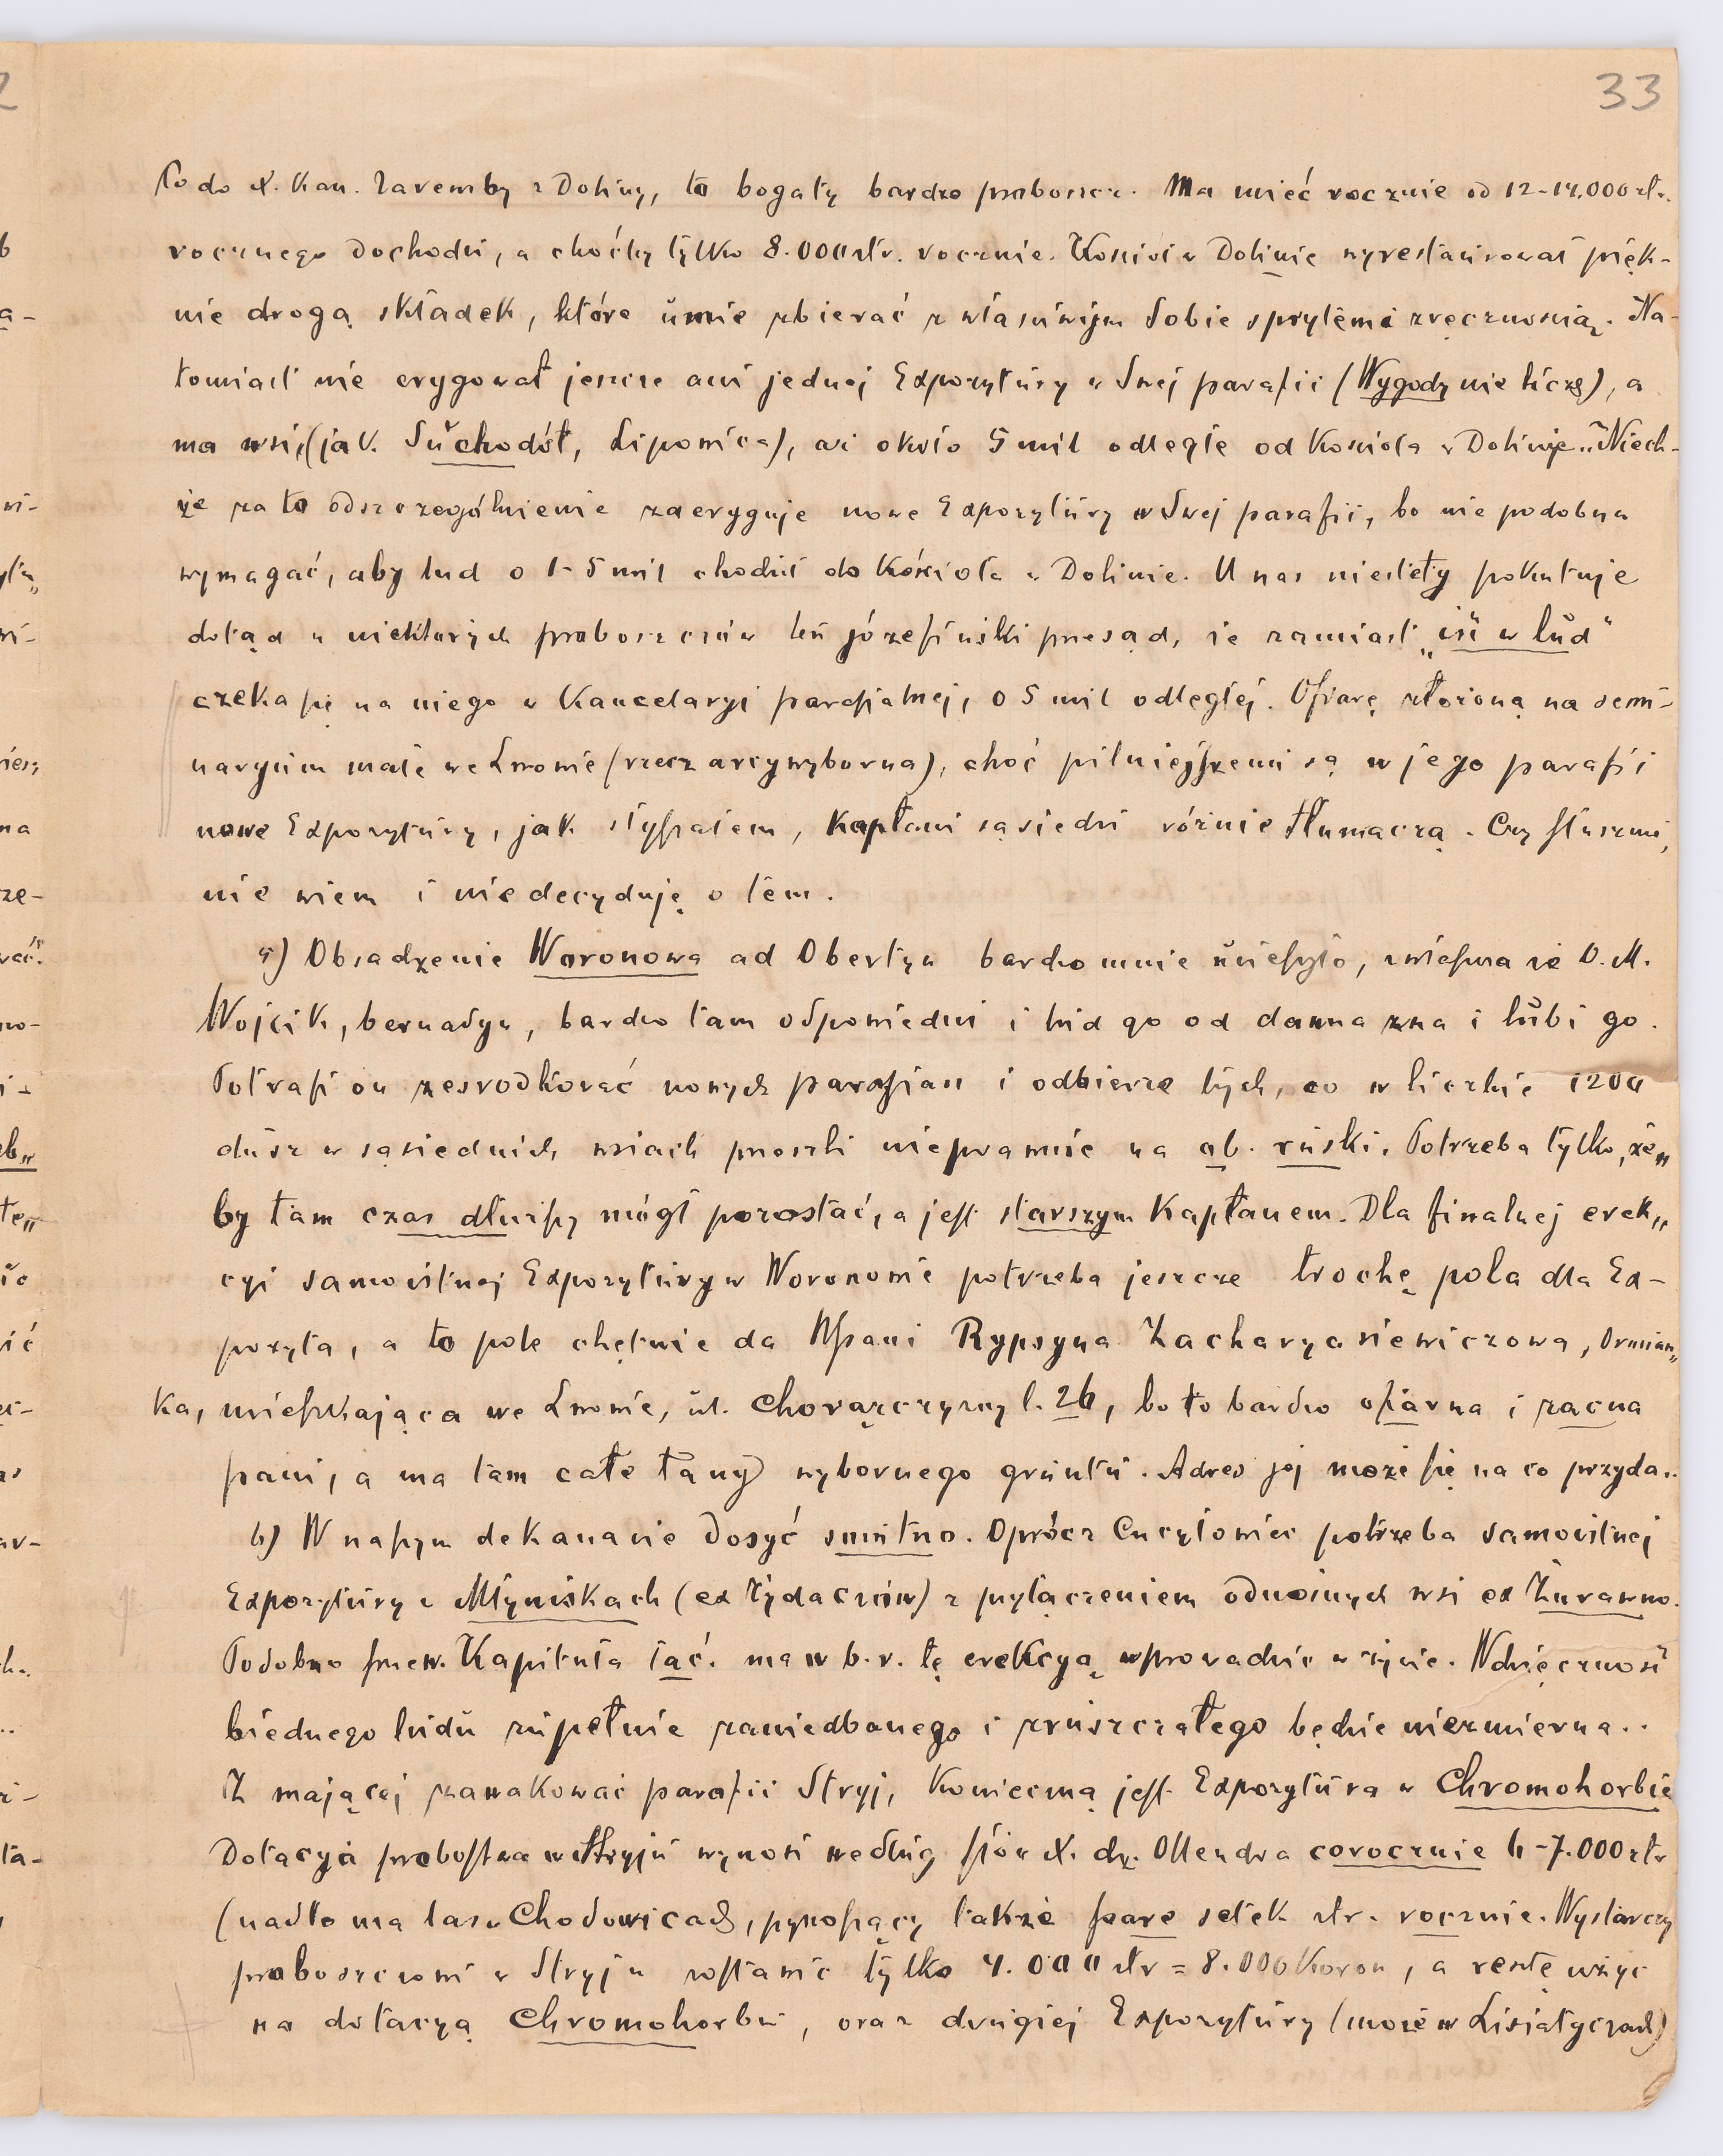 33
Co do X. Kan. Zaremby z Doliny, to bogaty bardzo proboszcz. Ma mieć rocznie od 12-14.000 złr.
rocznego dochodu, a choćby tylko 8.000 złr. rocznie. Kościół w Dolinie wyrestaurował pięk-
nie drogą składek, które umie zbierać z właściwym Sobie sprytem i zręcznością. Na-
tomiast nie erygował jeszcze ani jednej Expozytury w Swej parafii (Wygody nie liczę), a
ma wsi, (jak Suchodół, Lipowica), aż około 5 mil odległe od Kościoła w Dolinie. Niech-
że za to odszczególnienie zaeryguje nowe Expozytury w Swej parafii, bo nie podobna
wymagać, aby lud o 1-5 mil chodził do Kościoła w Dolinie. U nas niestety pokutuje
dotąd u niektórych proboszczów ten józefiński przesąd, że zamiast „iść w lud"
czeka się na niego w Kancelaryi parafialnej, o 5 mil odległej. Ofiarę złożoną na semi-
naryum małe we Lwowie (rzecz arcywyborna), choć pilniejszemi są w jego parafii
nowe Expozytury, jak słyszałem, Kapłani sąsiedzi różnie tłumaczą. Czy słusznie,
nie wiem i nie decyduję o tem.
a) Obsadzenie Woronowa ad Obertyn bardzo mnie ucieszyło, zwłaszcza że O. M.
Wojcik, bernadyn, bardzo tam odpowiedni i lud go od dawna zna i lubi go.
Potrafi on ześrodkować nowych parafian i odbierze tych, co w liczbie 1200
dusz w sąsiednich wsiach przeszli nieprawnie na ob. ruski. Potrzeba tylko, że„
by tam czas dłuższy mógł pozostać, a jest starszym Kapłanem. Dla finalnej erek„
cyi samoistnej Expozytury w Woronowie potrzeba jeszcze trochę pola dla Ex-
pozyta, a to pole chętnie da Wpani Rypsyna Zacharyasiewiczowa, Ormian„
ka, mieszkająca we Lwowie, ul. Chorążczyzny l. 26, bo to bardzo ofiarna i zacna
pani, a ma tam całe łany wybornego gruntu. Adres jej może się na co przyda..
b) W naszym dekanacie dosyć smutno. Oprócz Cucyłowiec potrzeba samoistnej
Expozytury w Młyniskach (ex Żydaczów) z przyłączeniem odnośnych wsi ex Żurawno.
Podobno przew. Kapituła łać. ma w b. r. tę erekcyą wprowadzić w życie. Wdzięczność
biednego ludu zupełnie zaniedbanego i zruszczałego będzie niezmierna..
Z mającej zawakować parafii Stryj, Konieczną jest Expozytura w Chromohorbie
Dotacya probostwa w Stryju wynosi według słów X. dz. Ollendra corocznie 6-7.000 złr
(nadto ma las w Chodowicach, przynoszący także parę setek złr. rocznie. Wystarczy
proboszczowi w Stryju zostawić tylko 4.000 złr = 8.000 Koron, a resztę użyć
na dotacyą Chromohorbu, oraz drugiej Expozytury (może w Lisiatyczach)